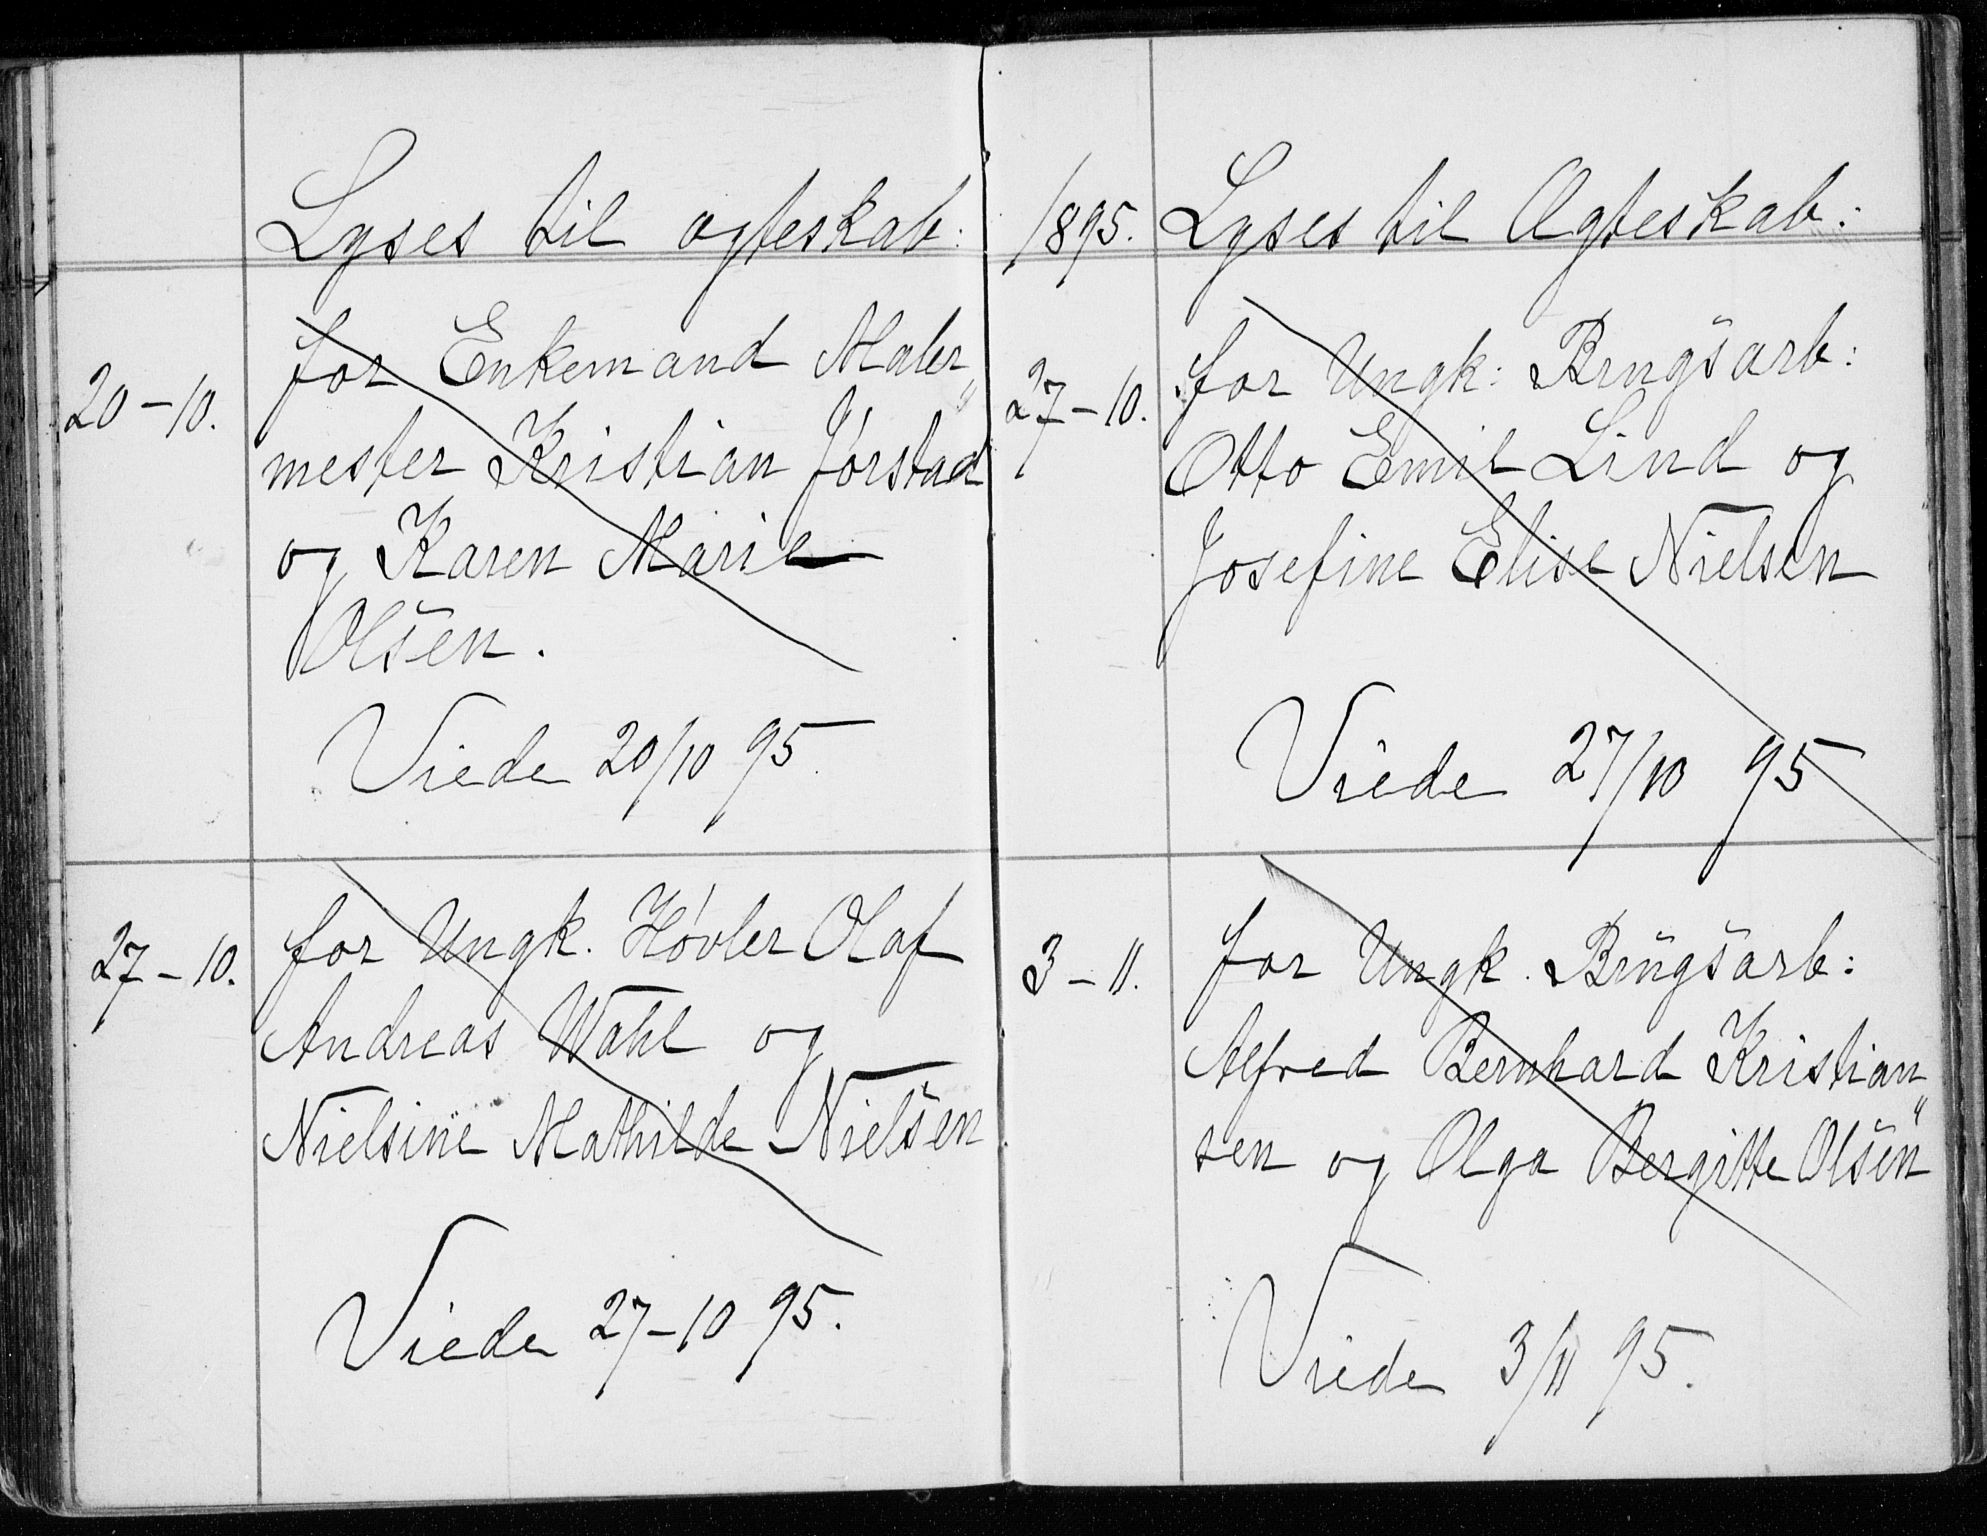 Lyses til ægteskab:
20-10.
for Enkemand Maler„
mester Kristian Jørstad
og Karen Marie
Olsen.
Viede 20/10 95.
27-10.
for Ungk. Høvler Olaf
Andreas Wahl og
Nielsine Mathilde Nielsen
Viede 27-10 95.
1895. Lyses til Ægteskab:
27-10.
for Ungk: Brugsarb:
Otto Emil Lind og
Josefine Elise Nielsen
Viede 27/10 95
3-11.
for Ungk. Brugsarb:
Alfred Bernhard Kristian„
sen og Olga Bergitte Olsen
Viede 3/11 95.